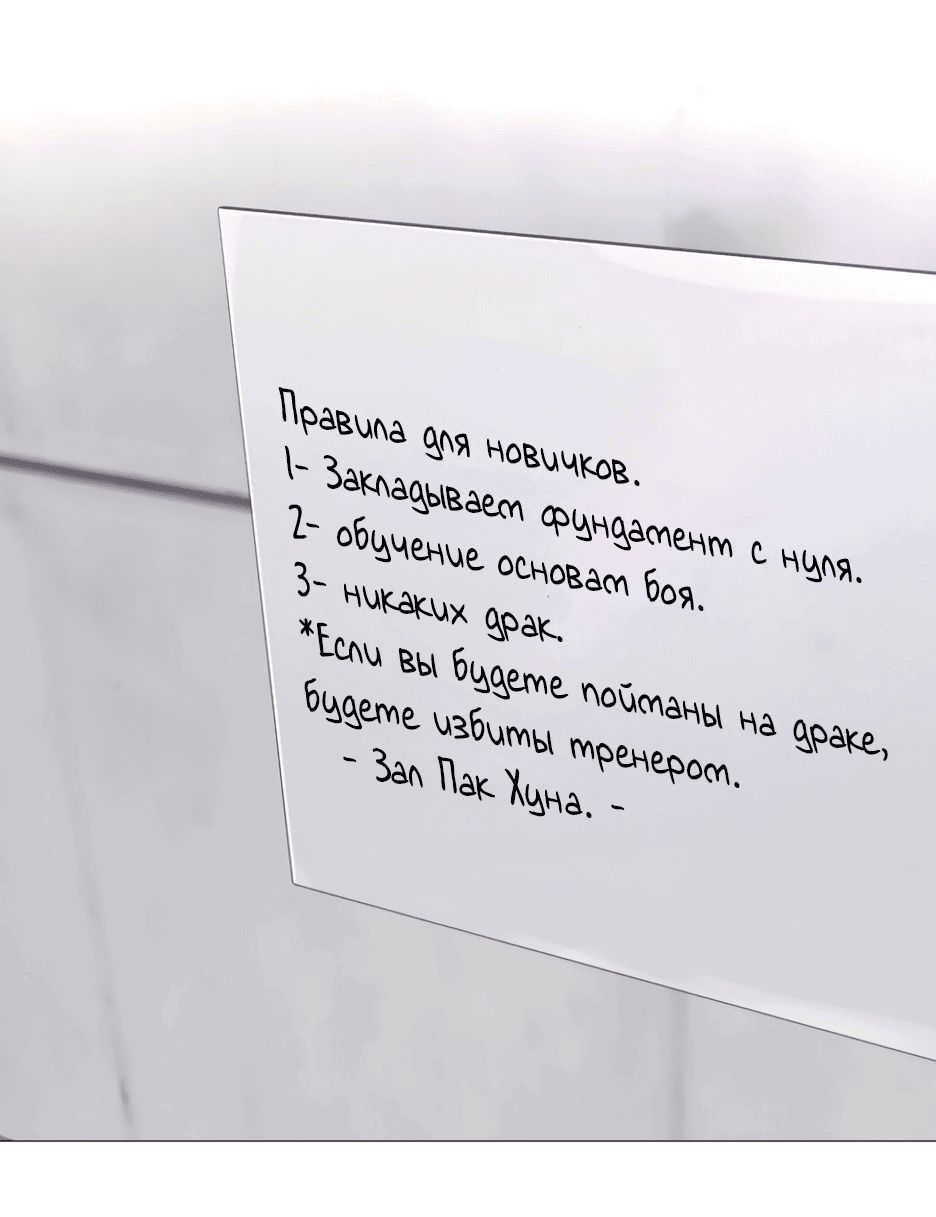 Правила для новичков.
1- Закладываем фундамент с нуля.
2- обучение основам боя.
3- никаких драк.
*Если вы будете пойманы на драке,
будете избиты тренером.
- Зал Пак Хуна. -